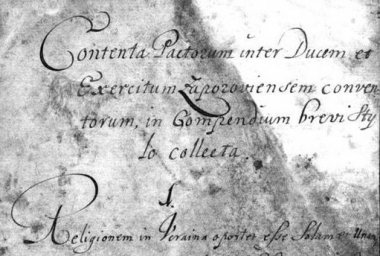 Contenta Pactorum inter Ducem et
Exercitum Zaporoviensem conven
torum, in Compendium brevi Sty
lo collecta.
1.
Religionem in Vcraina oportet esse Solam et Unam